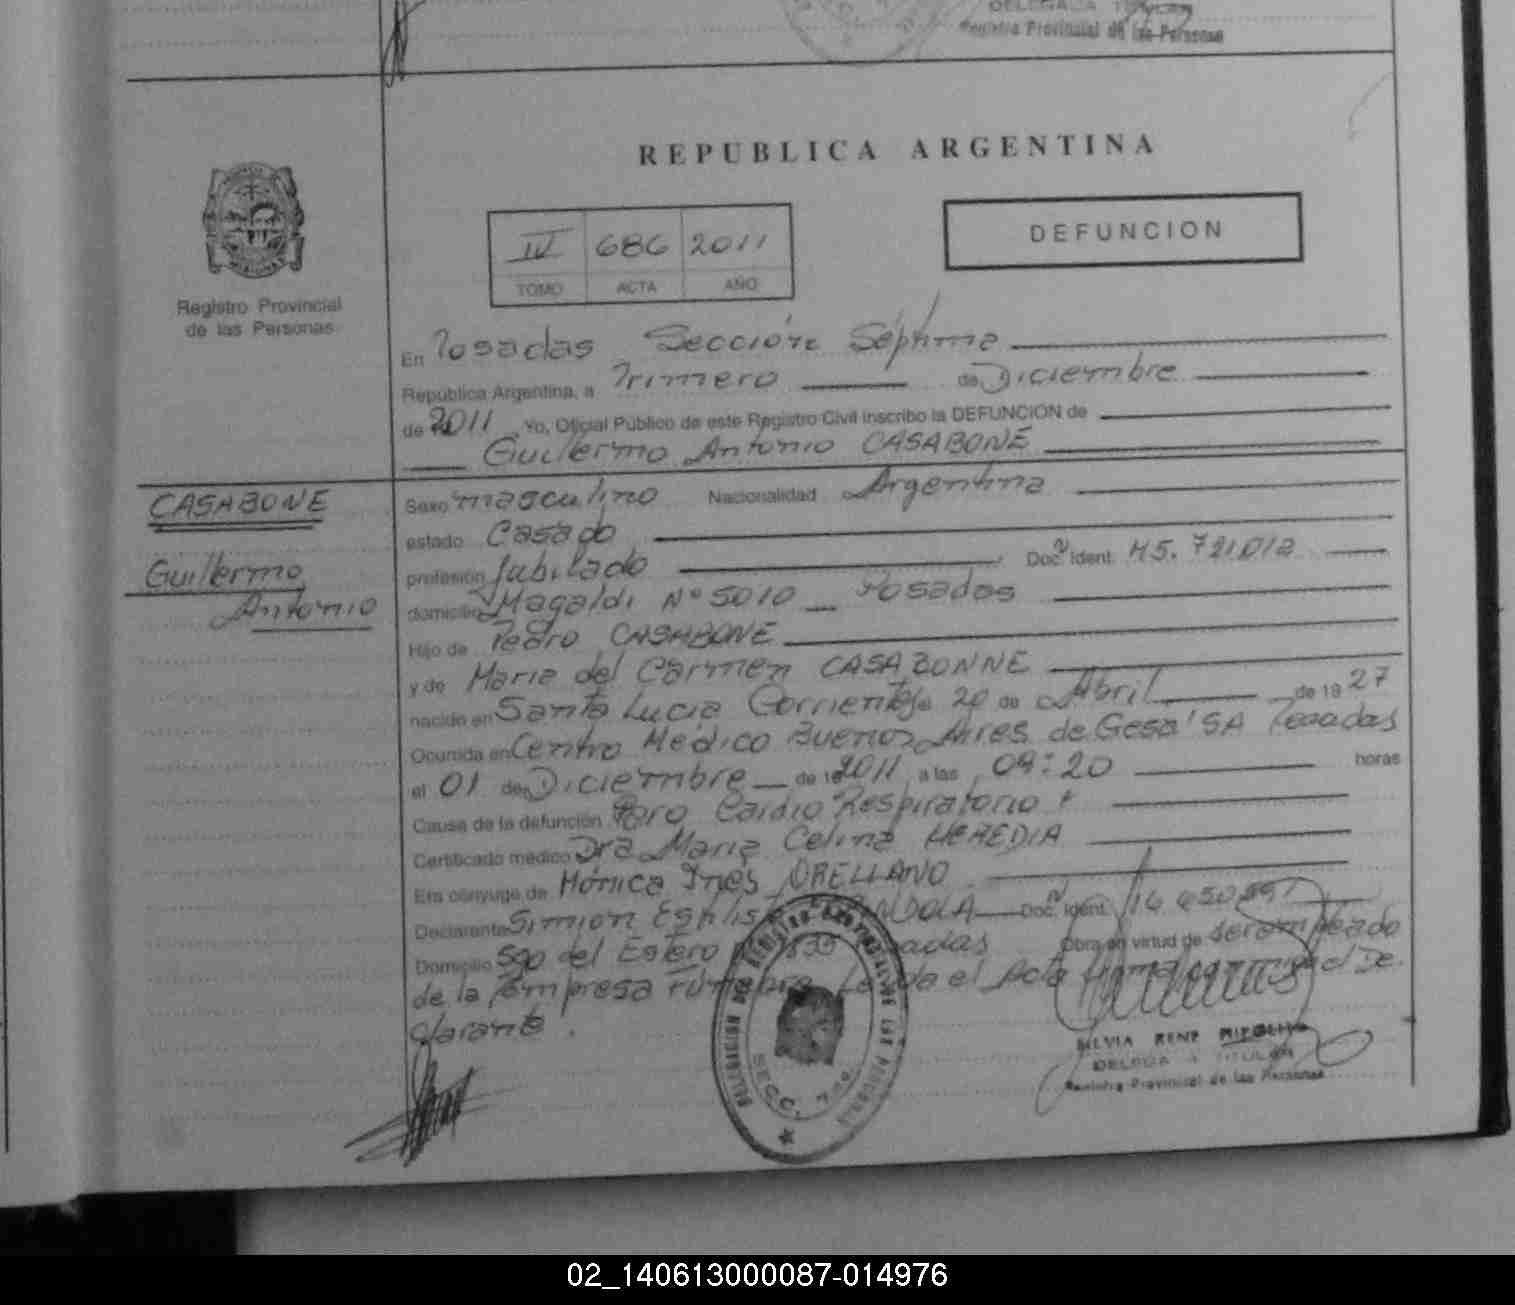 Registro Provincial de las Personas
REPUBLICA ARGENTINA
IV 686 2011
TOMO ACTA AÑO
DEFUNCION
Registro Provincial
de las Personas
En Posadas Sección Séptima
República Argentina, a Primero de Diciembre
de 2011 Yo, Oficial Público de este Registro Civil inscribo la DEFUNCION de
Guillermo Antonio CASABONE
CASABONE
Guillermo
Antonio
Sexo masculino Nacionalidad Argentina
estado Casado
profesión Jubilado Doc. Ident. M5.721.012
domicilio Magaldi Nº 5010 Posadas
Hijo de Pedro CASABONE
y de Maria del Carmen CASABONNE
nacido en Santa Lucia Corrientes 20 de Abril de 19 27
Ocurrida en Centro Médico Buenos Aires de Gesa SA Posadas
el 01 de Diciembre de 2011 a las 09:20 horas
Cause de la defunción Paro Cardio Respiratorio
Certificado médico Dra Maria Celina HEREDIA
Era cónyuge de Mónica Inés ORELLANO
Declarante Simion Doc. Ident. 16
Domicilio Sgo del Estero Posadas Obra en virtud de ser empleado
de la Empresa el Acta De
clarante.
DELEGACION DEL REGISTRO PROVINCIAL DE LAS PERSONAS
SECC. 7ma
SILVIA RENE
DELEGADA TITULAR
Registro Provincial de las Personas
02_140613000087-014976